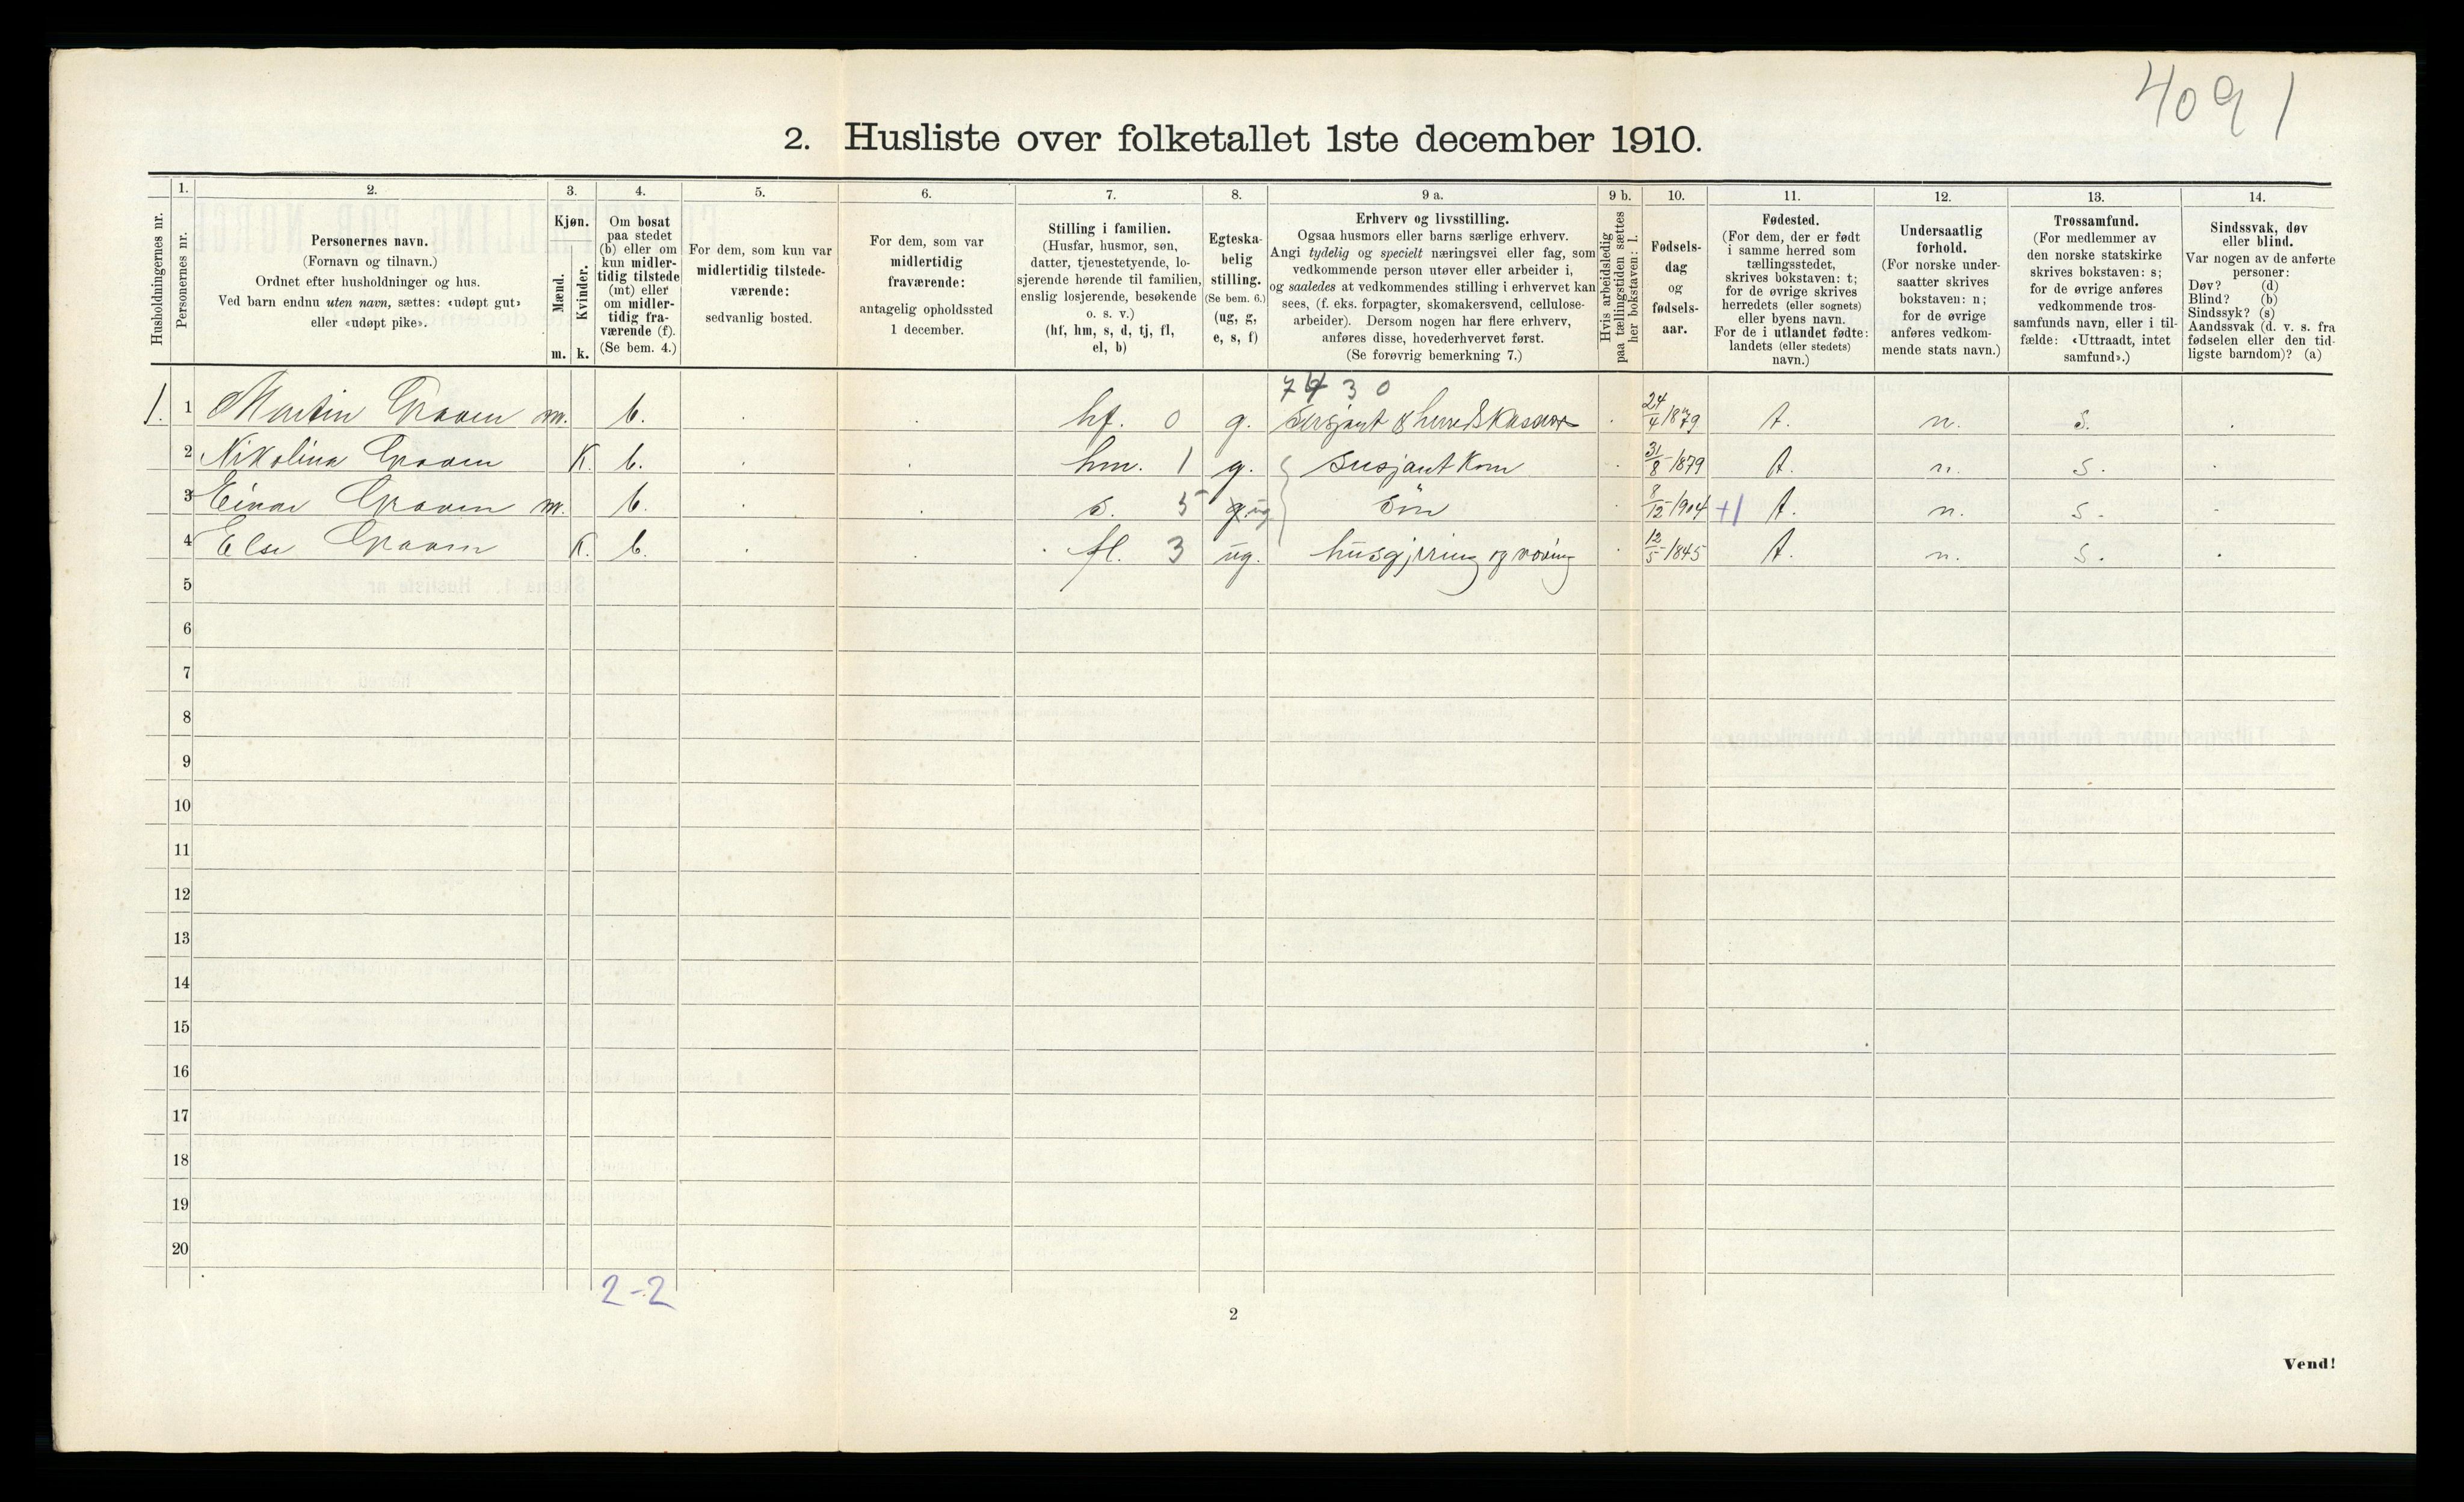 4091
2. Husliste over folketallet 1ste december 1910.
Husholdningernes nr.
1.
Personernes nr.
2.
Personernes navn.
(Fornavn og tilnavn.)
Ordnet efter husholdninger og hus.
Ved barn endnu uten navn, sættes: «udøpt gut»
eller «udøpt pike».
3.
Kjøn.
Mænd.
Kvinder.
m. k.
4.
Om bosat
paa stedet
(b) eller om
kun midler-
tidig tilstede
(mt) eller
om midler-
tidig fra-
værende (f).
(Se bem. 4.)
5.
For dem, som kun var
midlertidig tilstede-
værende:
sedvanlig bosted.
6.
For dem, som var
midlertidig
fraværende:
antagelig opholdssted
1 december.
7.
Stilling i familien.
(Husfar, husmor, søn,
datter, tjenestetyende, lo-
sjerende hørende til familien,
enslig losjerende, besøkende
o. s. v.)
(hf, hm, s, d, tj, fl,
el, b)
8.
Egteska-
belig
stilling.
(Se bem. 6.)
(ug, g,
e, s, f)
9 a.
Erhverv og livsstilling.
Ogsaa husmors eller barns særlige erhverv.
Angi tydelig og specielt næringsvei eller fag, som
vedkommende person utøver eller arbeider i,
og saaledes at vedkommendes stilling i erhvervet kan
sees, (f. eks. forpagter, skomakersvend, cellulose-
arbeider). Dersom nogen har flere erhverv,
anføres disse, hovederhvervet først.
(Se forøvrig bemerkning 7.)
9 b.
Hvis arbeidsledig
paa tællingstiden sættes
her bokstaven: l.
10.
Fødsels-
dag
og
fødsels-
aar.
11.
Fødested.
(For dem, der er født
i samme herred som
tællingsstedet,
skrives bokstaven: t;
for de øvrige skrives
herredets (eller sognets)
eller byens navn.
For de i utlandet fødte:
landets (eller stedets)
navn.)
12.
Undersaatlig
forhold.
(For norske under-
saatter skrives
bokstaven: n;
for de øvrige
anføres vedkom-
mende stats navn.)
13.
Trossamfund.
(For medlemmer av
den norske statskirke
skrives bokstaven: s;
for de øvrige anføres
vedkommende tros-
samfunds navn, eller i til-
fælde: «Uttraadt, intet
samfund».)
14.
Sindssvak, døv
eller blind.
Var nogen av de anførte
personer:
Døv? (d)
Blind? (b)
Sindssyk? (s)
Aandssvak (d. v. s. fra
fødselen eller den tid-
ligste barndom)? (a)
1. 1 Martin Graven m. b. hf. 0 g. Sersjant & herredskasser 24/4 1879 t. n. s.
2 Nikolina Graven K. b. hm. 1 g. Sersjantkone 31/8 1879 t. n. s.
3 Einar Graven m. b. s. 5 ug Sön 8/12 1904 +1 t. n. s.
4 Else Graven K. b. fl. 3 ug. husgjerning og væving 12/5 1845 t. n. s.
5
6
7
8
9
10
11
12
13
14
15
16
17
18
19
20
2-2
2
Vend!